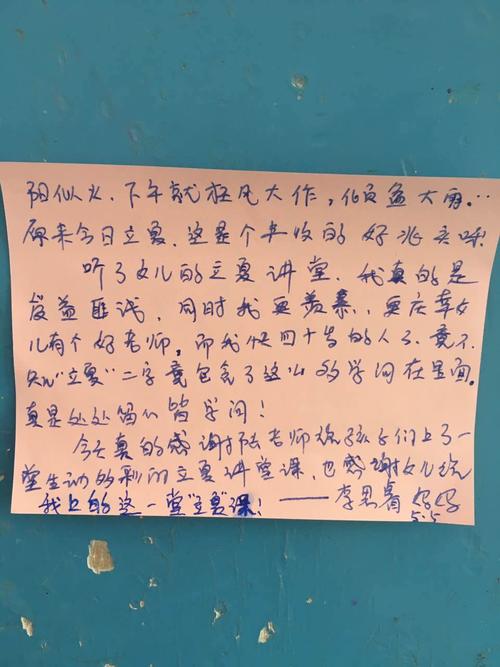 阳似火,下午就狂风大作,倾盆大雨…
原来今日立夏,这是个丰收的好兆头呀
听了女儿的立夏讲堂,我真的是
受益匪浅,同时我更羡慕,更庆幸女
儿有个好老师,而我快四十岁的人了,竟不
知"立夏"二字竟包含了这么多的学问在里面。
真是处处留心皆学问!
今天真的感谢陆老师给孩子们上了一
堂生动多彩的立夏讲堂课,也感谢女儿给
我上的这一堂"立夏"课! ——李思睿 妈妈
5.5